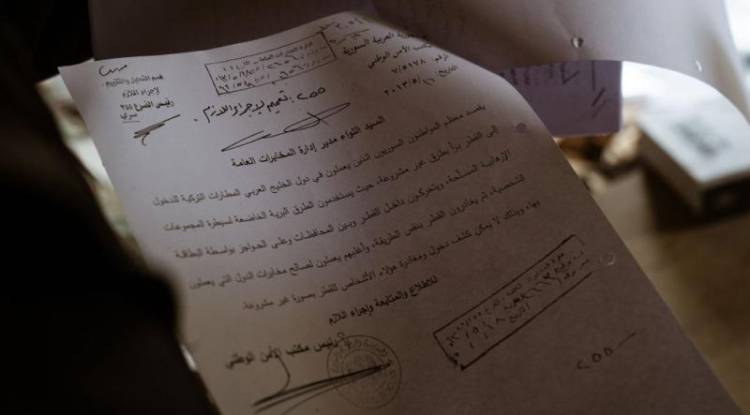 الجمهورية العربية السورية
مكتب الأمن الوطني
سري
رئيس الفرع ٢٥٥
٢٥٥ تعميم لإجراء اللازم
السيد اللواء مدير إدارة المخابرات العامة
يقصد معظم المواطنين السوريين الذين يعملون في دول الخليج العربي المطارات التركية للدخول
إلى القطر براً بطرق غير مشروعة، حيث يستخدمون الطرق البرية الخاضعة لسيطرة المجموعات
الإرهابية المسلحة، ويتحركون داخل القطر وبين المحافظات وعلى الحواجز بواسطة البطاقة
الشخصية، ثم يغادرون القطر بنفس الطريقة، وأغلبهم يعملون لصالح مخابرات الدول التي يعملون
بها، وبذلك لا يمكن كشف دخول ومغادرة هؤلاء الأشخاص للقطر بصورة غير مشروعة.
للاطلاع والمتابعة وإجراء اللازم
رئيس مكتب الأمن الوطني
٢٥٥